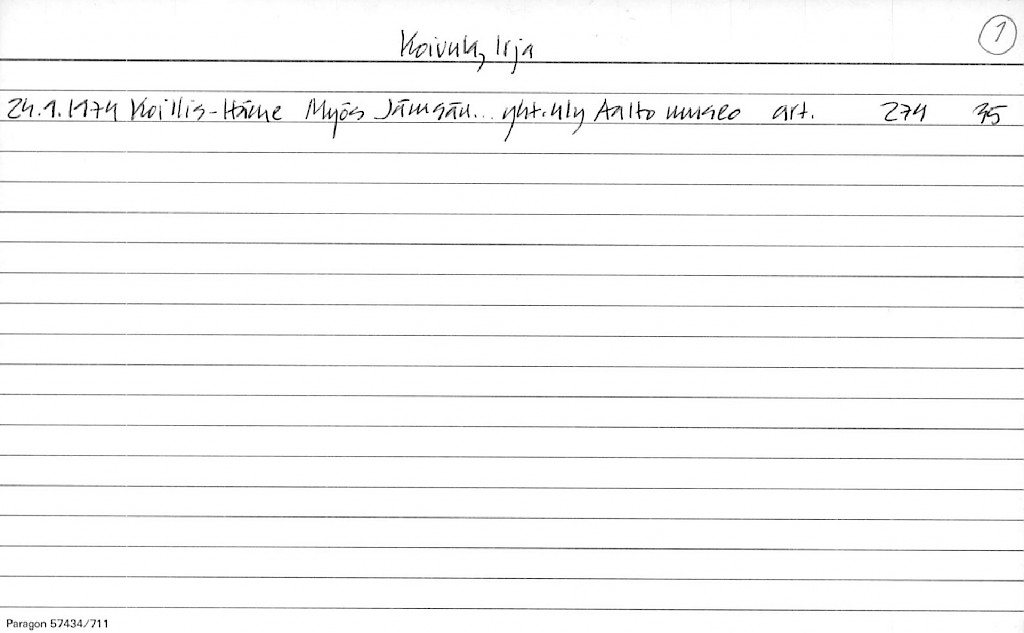 1
Koivula, Irja
24.1.1974 Koillis-Häme Myös Jämsän... yht. Aalto museo art. 274 35
Paragon 57434/711